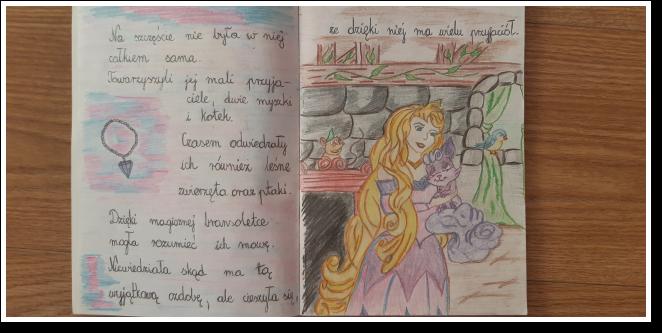 Na szczęście nie była w niej
całkiem sama.
Towarzyszyli jej mali przyja-
ciele, dwie myszki
i kotek.
Czasem odwiedzały
ich również leśne
zwierzęta oraz ptaki.
Dzięki magicznej bransoletce
mogła rozumieć ich mowę.
Niewiedziała skąd ma tą
wyjątkową ozdobę, ale cieszyła się,
że dzięki niej ma wielu przyjaciół.